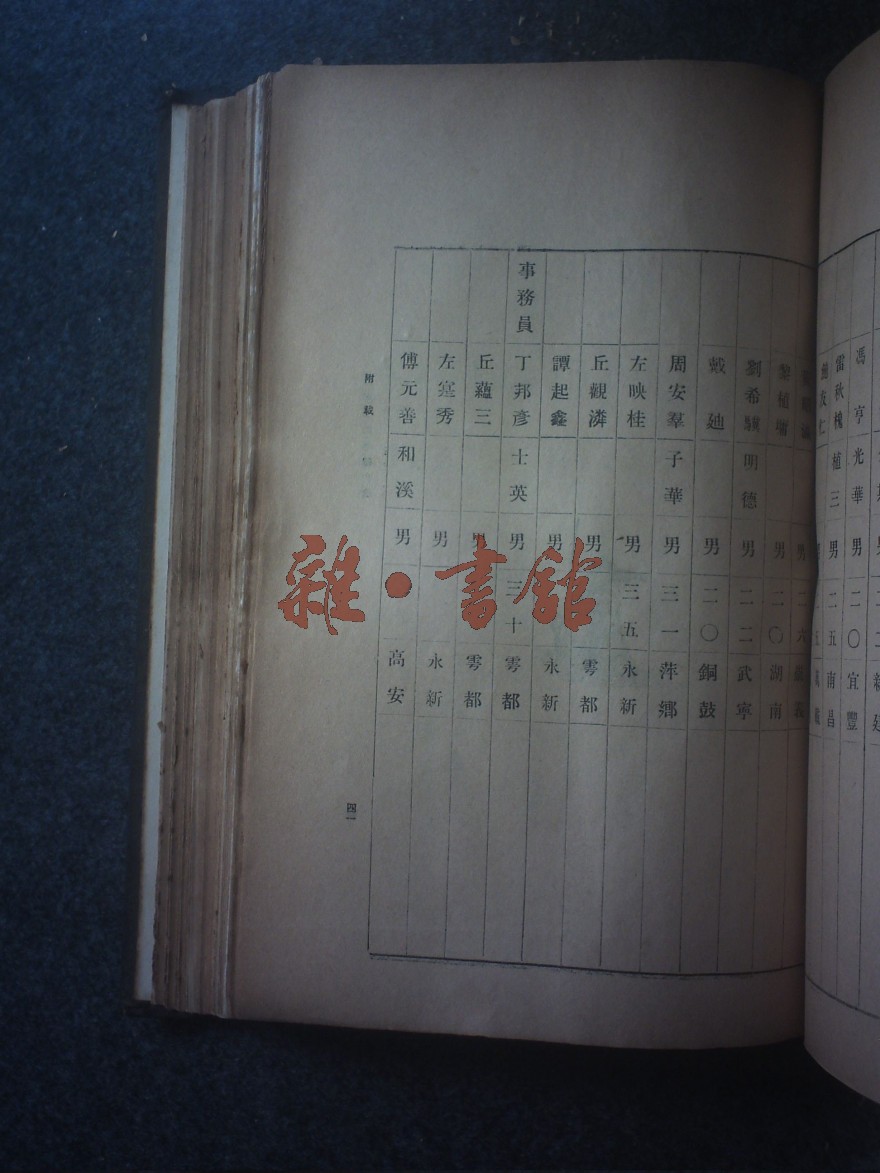 馮亨光華男二〇宜豐
雷秋槐植三男二五南昌
男二六
男二〇湖南
劉希驥明德男二二武寧
戴迪男二〇銅鼓
周安羣子華男三一萍鄉
左映桂男三五永新
丘觀潾男雩都
譚起鑫男永新
事務員丁邦彥士英男三十雩都
丘蘊三男雩都
左蹇秀男永新
傅元善和溪男高安
附載
四一
雜·書館